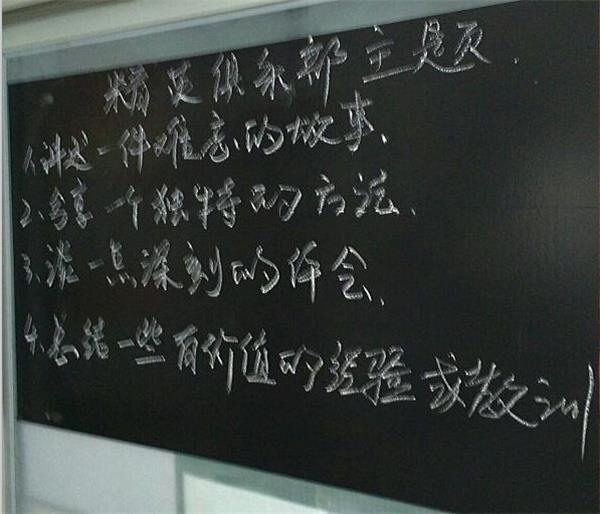 精英俱乐部主题.
1.讲述一件难忘的故事.
2.分享一个独特的方法.
3.谈一点深刻的体会.
4.总结一些有价值的经验或教训